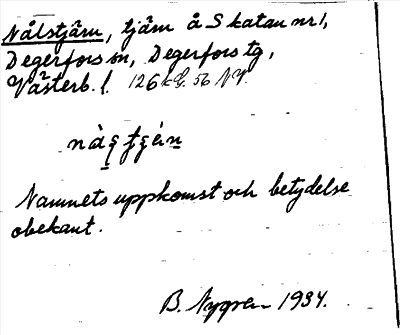 Nålstjärn, tjärn å Skatan nr 1,
Degerfors sn, Degerfors tg,
Västerb. l. 126 56 NV.
Namnets uppkomst och betydelse
obekant.
B. Nygren 1934.